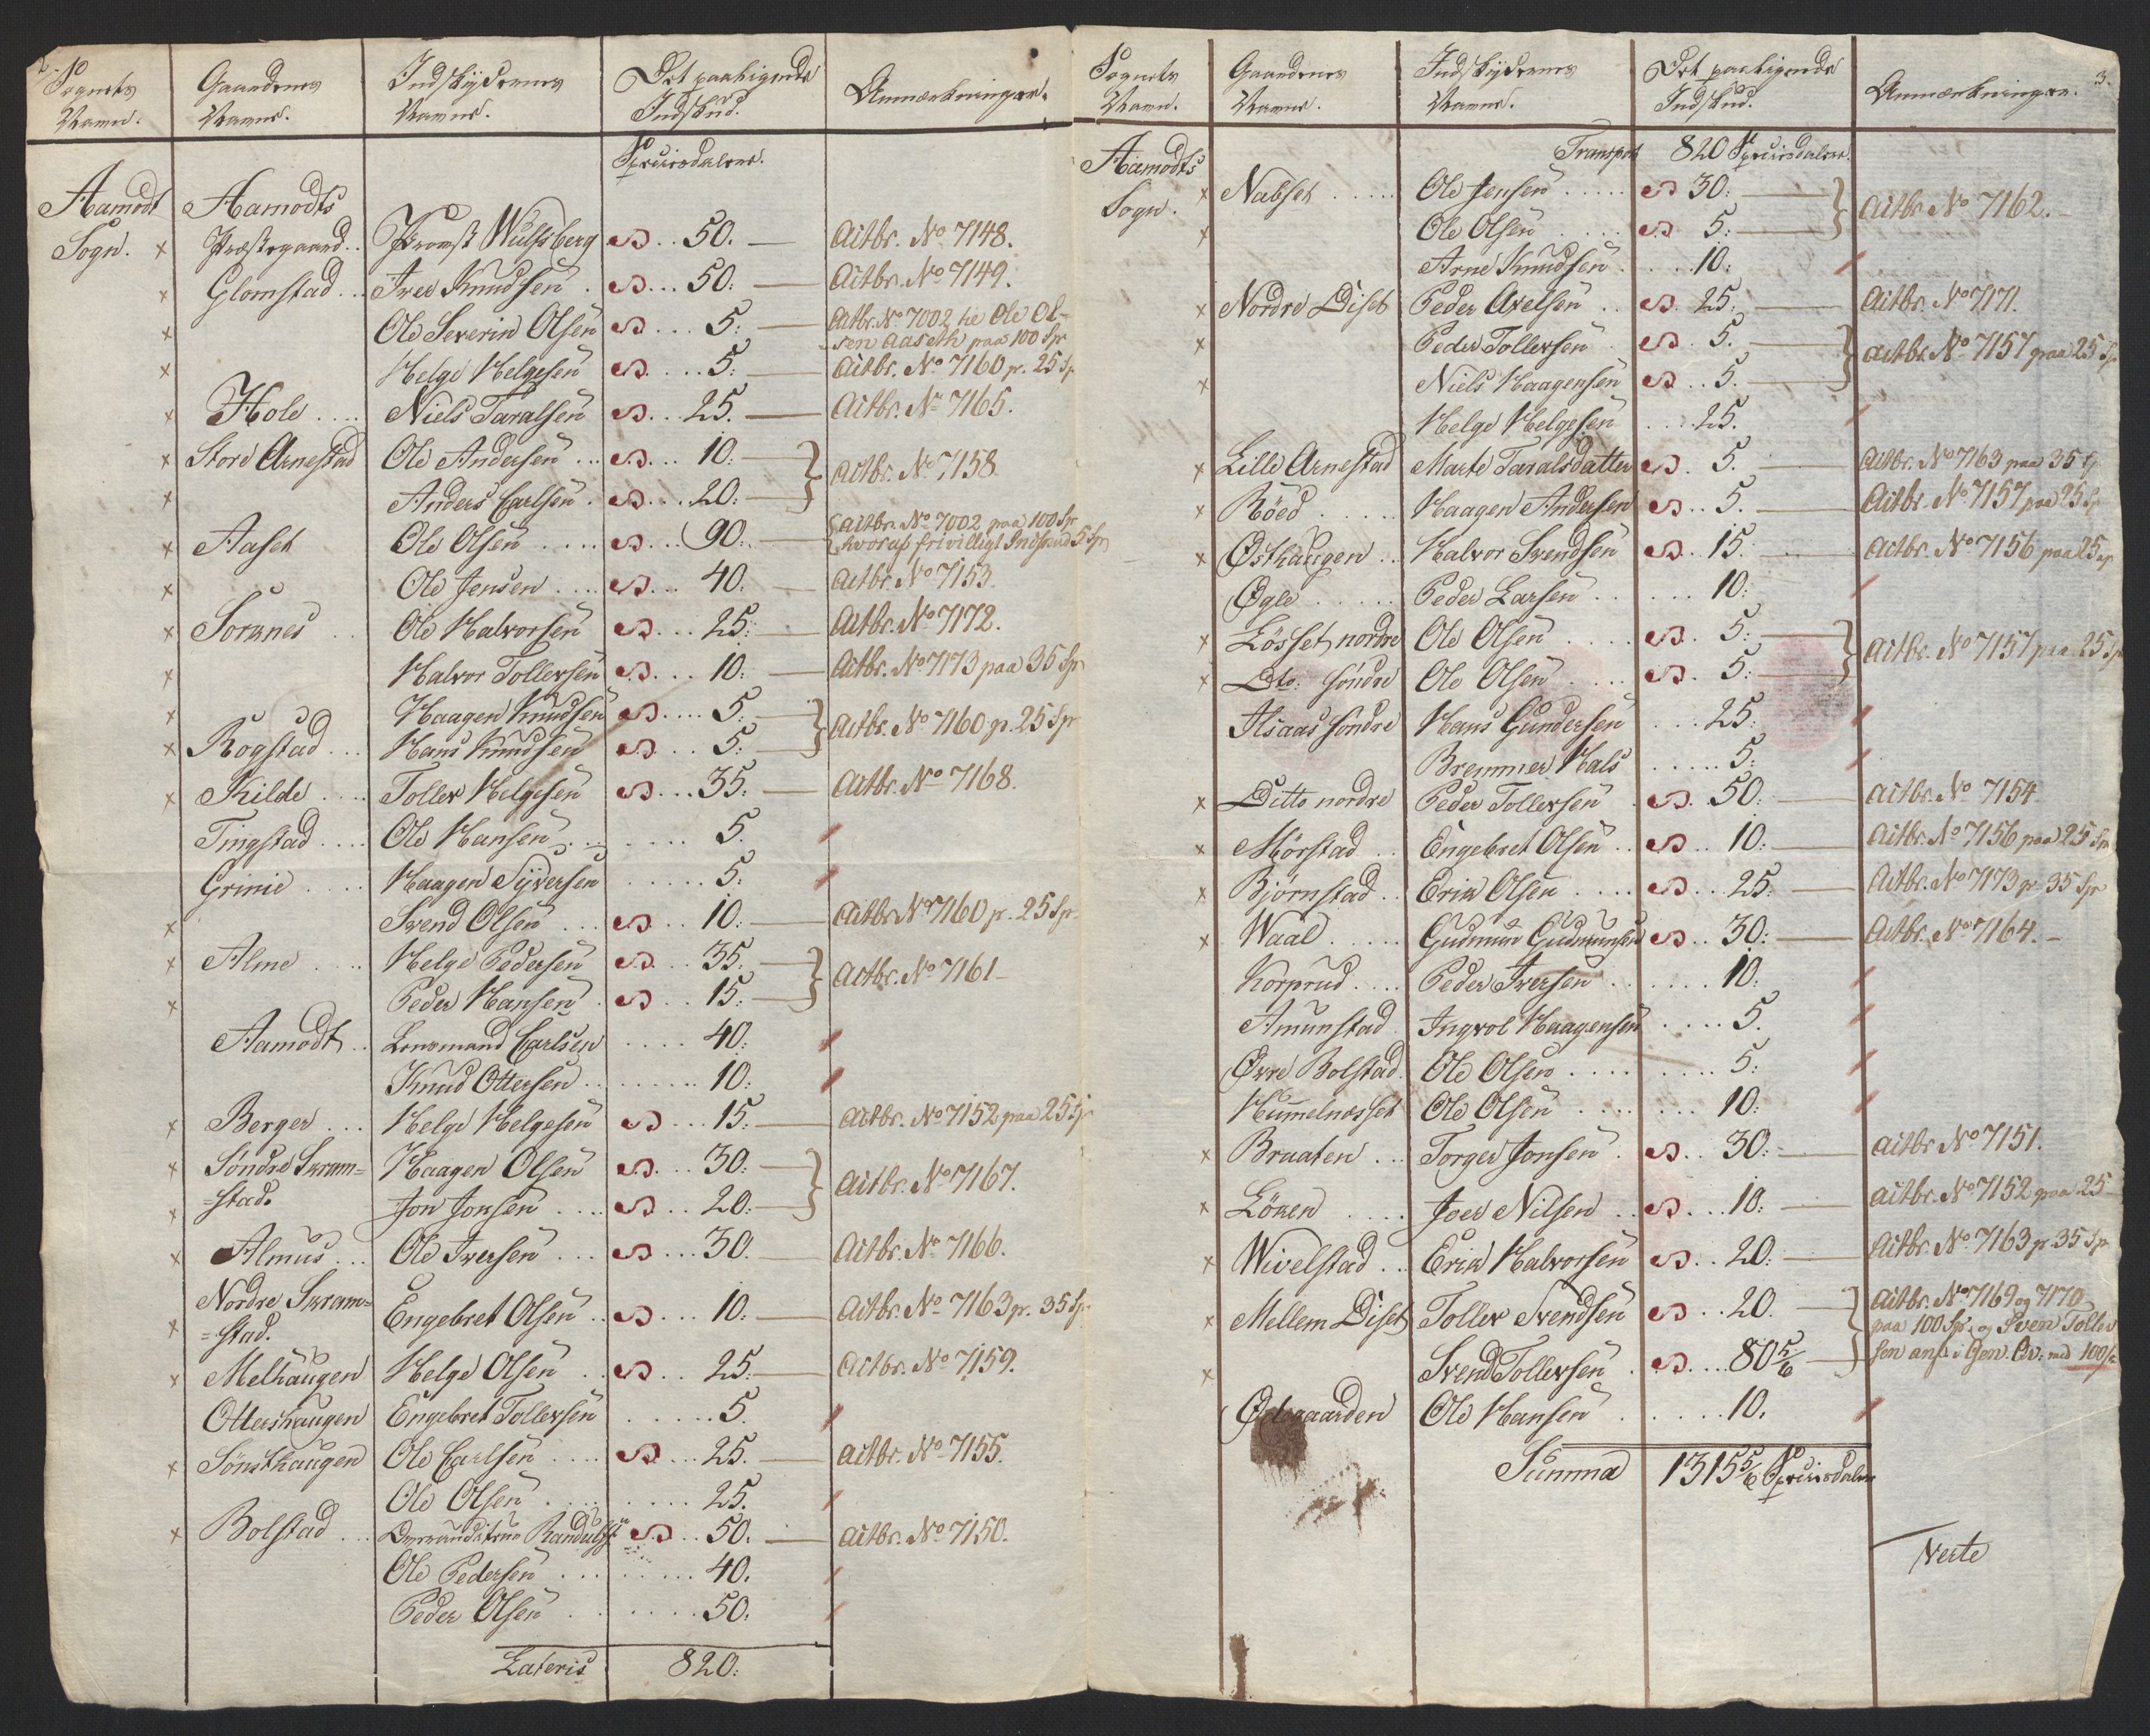 2.
Sognets Gaardenes Indskydernes Det paaligende Anmærkninger.
Navn. Navne. Navne. Indskud.
Speciesdaler.
Aamodt Aamodts
Sogn. x Præstegaard .. Provst Wulfsberg S .. 50. — Actbr. No 7148.
x Glomstad .. Iver Knudsen . S ... 50: — Actbr. No 7149.
x Ole Severin Olsen S ... 5: — Actbr. No 7002 til Ole Ol-
sen Aaseth paa 100 Sp
x Helge Helgesen S .... 5: — Actbr. No 7160 p. 25 Sp
x Hole .... Niels Taralsen S .. 25. — Actbr. No 7165.
x Store Arnestad Ole Andersen ... S ... 10: — } Actbr. No 7158
x Anders Carlsen . S ... 20: —
x Aaset Ole Olsen .... S ... 90: — { Actbr. No 7002 paa 100 Sp
hvoraf frivilligt Indskud 5 Sp
x Ole Jensen .... S ... 40. — Actbr. No 7153.
x Sorknes .. Ole Halvorsen S ... 25: — Actbr. No 7172.
x Halvor Tollersen S ... 10: — Actbr. No 7173 paa 35 Sp
x Haagen Knudsen S .... 5: — } Actbr. No 7160 p. 25 Sp
x Rogstad ... Hans Knudsen S ... 5: —
x Kilde .... Toller Helgesen S ... 35. — Actbr. No 7168.
Tingstad .... Ole Hansen ....... 5.
Grinie .... Haagen Syversen ..... 5:
x Svend Olsen ... S ... 10: — Actbr No 7160 p. 25 Sp.
x Alme .... Helge Pedersen S ... 35. — } Actbr. No 7161 —
x Peder Hansen . S ... 15: —
Aamodt .. Lensmand Carlsen .... 40:
Knud Ottersen ....... 10:
x Berger ... Helge Helgesen S ... 15: — Actbr. No 7152 paa 25 Sp
x Søndre Skram= Haagen Olsen S ... 30: — } Actbr. No 7167.
x =stad. Jon Jonsen .... S .. 20: —
x Almus ... Ole Iversen ... S ... 30. — Actbr. No 7166.
Nordre Skram=
x =stad. Engebret Olsen .. S ... 10: — Actbr. No 7163 p. 35 Sp
x Melhaugen Helge Olsen .. S .. 25: — Actbr. No 7159.
Ottershaugen Engebret Tollersen ..... 5.
x Sønsthaugen Ole Carlsen .... S ... 25. — Actbr. No 7155.
Ole Olsen ........ 25.
x Bolstad ... Randulff S .. 50. — Actbr. No 7150.
Ole Pedersen ........ 40.
Peder Olsen ...... 50:
Lateris 820:
3.
Sognets Gaardenes Indskydernes Det paaligende Anmærkninger.
Navn. Navne. Navne. Indskud.
Transport 820 Speciesdaler.
Aamodts
Sogn. x Nabset ..... Ole Jensen ..... S 30: — } Actbr. No 7162. —
x Ole Olsen .... S 5: —
Arne Knudsen .... 10:
x Nordre Diset Peder Axelsen .. S. 25: — Actbr. No 7171.
x Peder Tollersen . S. 5. — } Actbr. No 7157 paa 25 Sp
x Niels Haagensen S .. 5. —
Helge Helgesen .... 25.
x Lille Arnestad Marte Taralsdatter S. 5. — Actbr. No 7163 paa 35 Sp
x Röed ..... Haagen Andersen S .. 5. — Actbr. No 7157 paa 25 Sp
x Østhaugen .. Halvor Svendsen S .. 15. — Actbr. No 7156 paa 25 Sp
Ogle ..... Peder Larsen ..... 10:
x Løsset nordre Ole Olsen .... S. 5: — } Actbr. No 7157 paa 25 Sp
x Dto: søndre Ole Olsen .... S. 5: —
Alsaas søndre Hans Gundersen ... 25:
Bremmer Hals ..... 5:
x Ditto nordre Peder Tollersen . S. 50: — Actbr. No 7154
x Mørstad .. Engebret Olsen .. S .. 10: — Actbr. No 7156 paa 25 Sp
x Bjørnstad .. Erik Olsen .... S .. 25: — Actbr. No 7173 p. 35 Sp
x Waal ..... Gudmun Gudmunsen S .. 30: — Actbr. No 7164. —
Korprud .... Peder Iversen ...... 10:
Amunstad Ingvol Haagensen .... 5.
Øvre Bolstad Ole Olsen ........ 5:
Hummelnæsset Ole Olsen ....... 10:
x Braaten ... Torger Jonsen . S .. 30: — Actbr No 7151.
x Löken .... Joer Nilsen .. S ... 10: — Actbr. No 7152 paa 25
x Wivelstad .. Erik Halvorsen S .. 20: — Actbr. No 7163 p. 35 Sp
x Mellem Diset Toller Svendsen S .. 20. — } Actbr. No 7169 og 7170
paa 100 Sp. og Sven Toller
x Svend Tollersen . S .... 80 5/6 — sen anf. i Gen. Qv: med 100 Sp
Ødegaarden Ole Hansen ...... 10.
Summa 1315 5/6 Speciesdaler
Verte